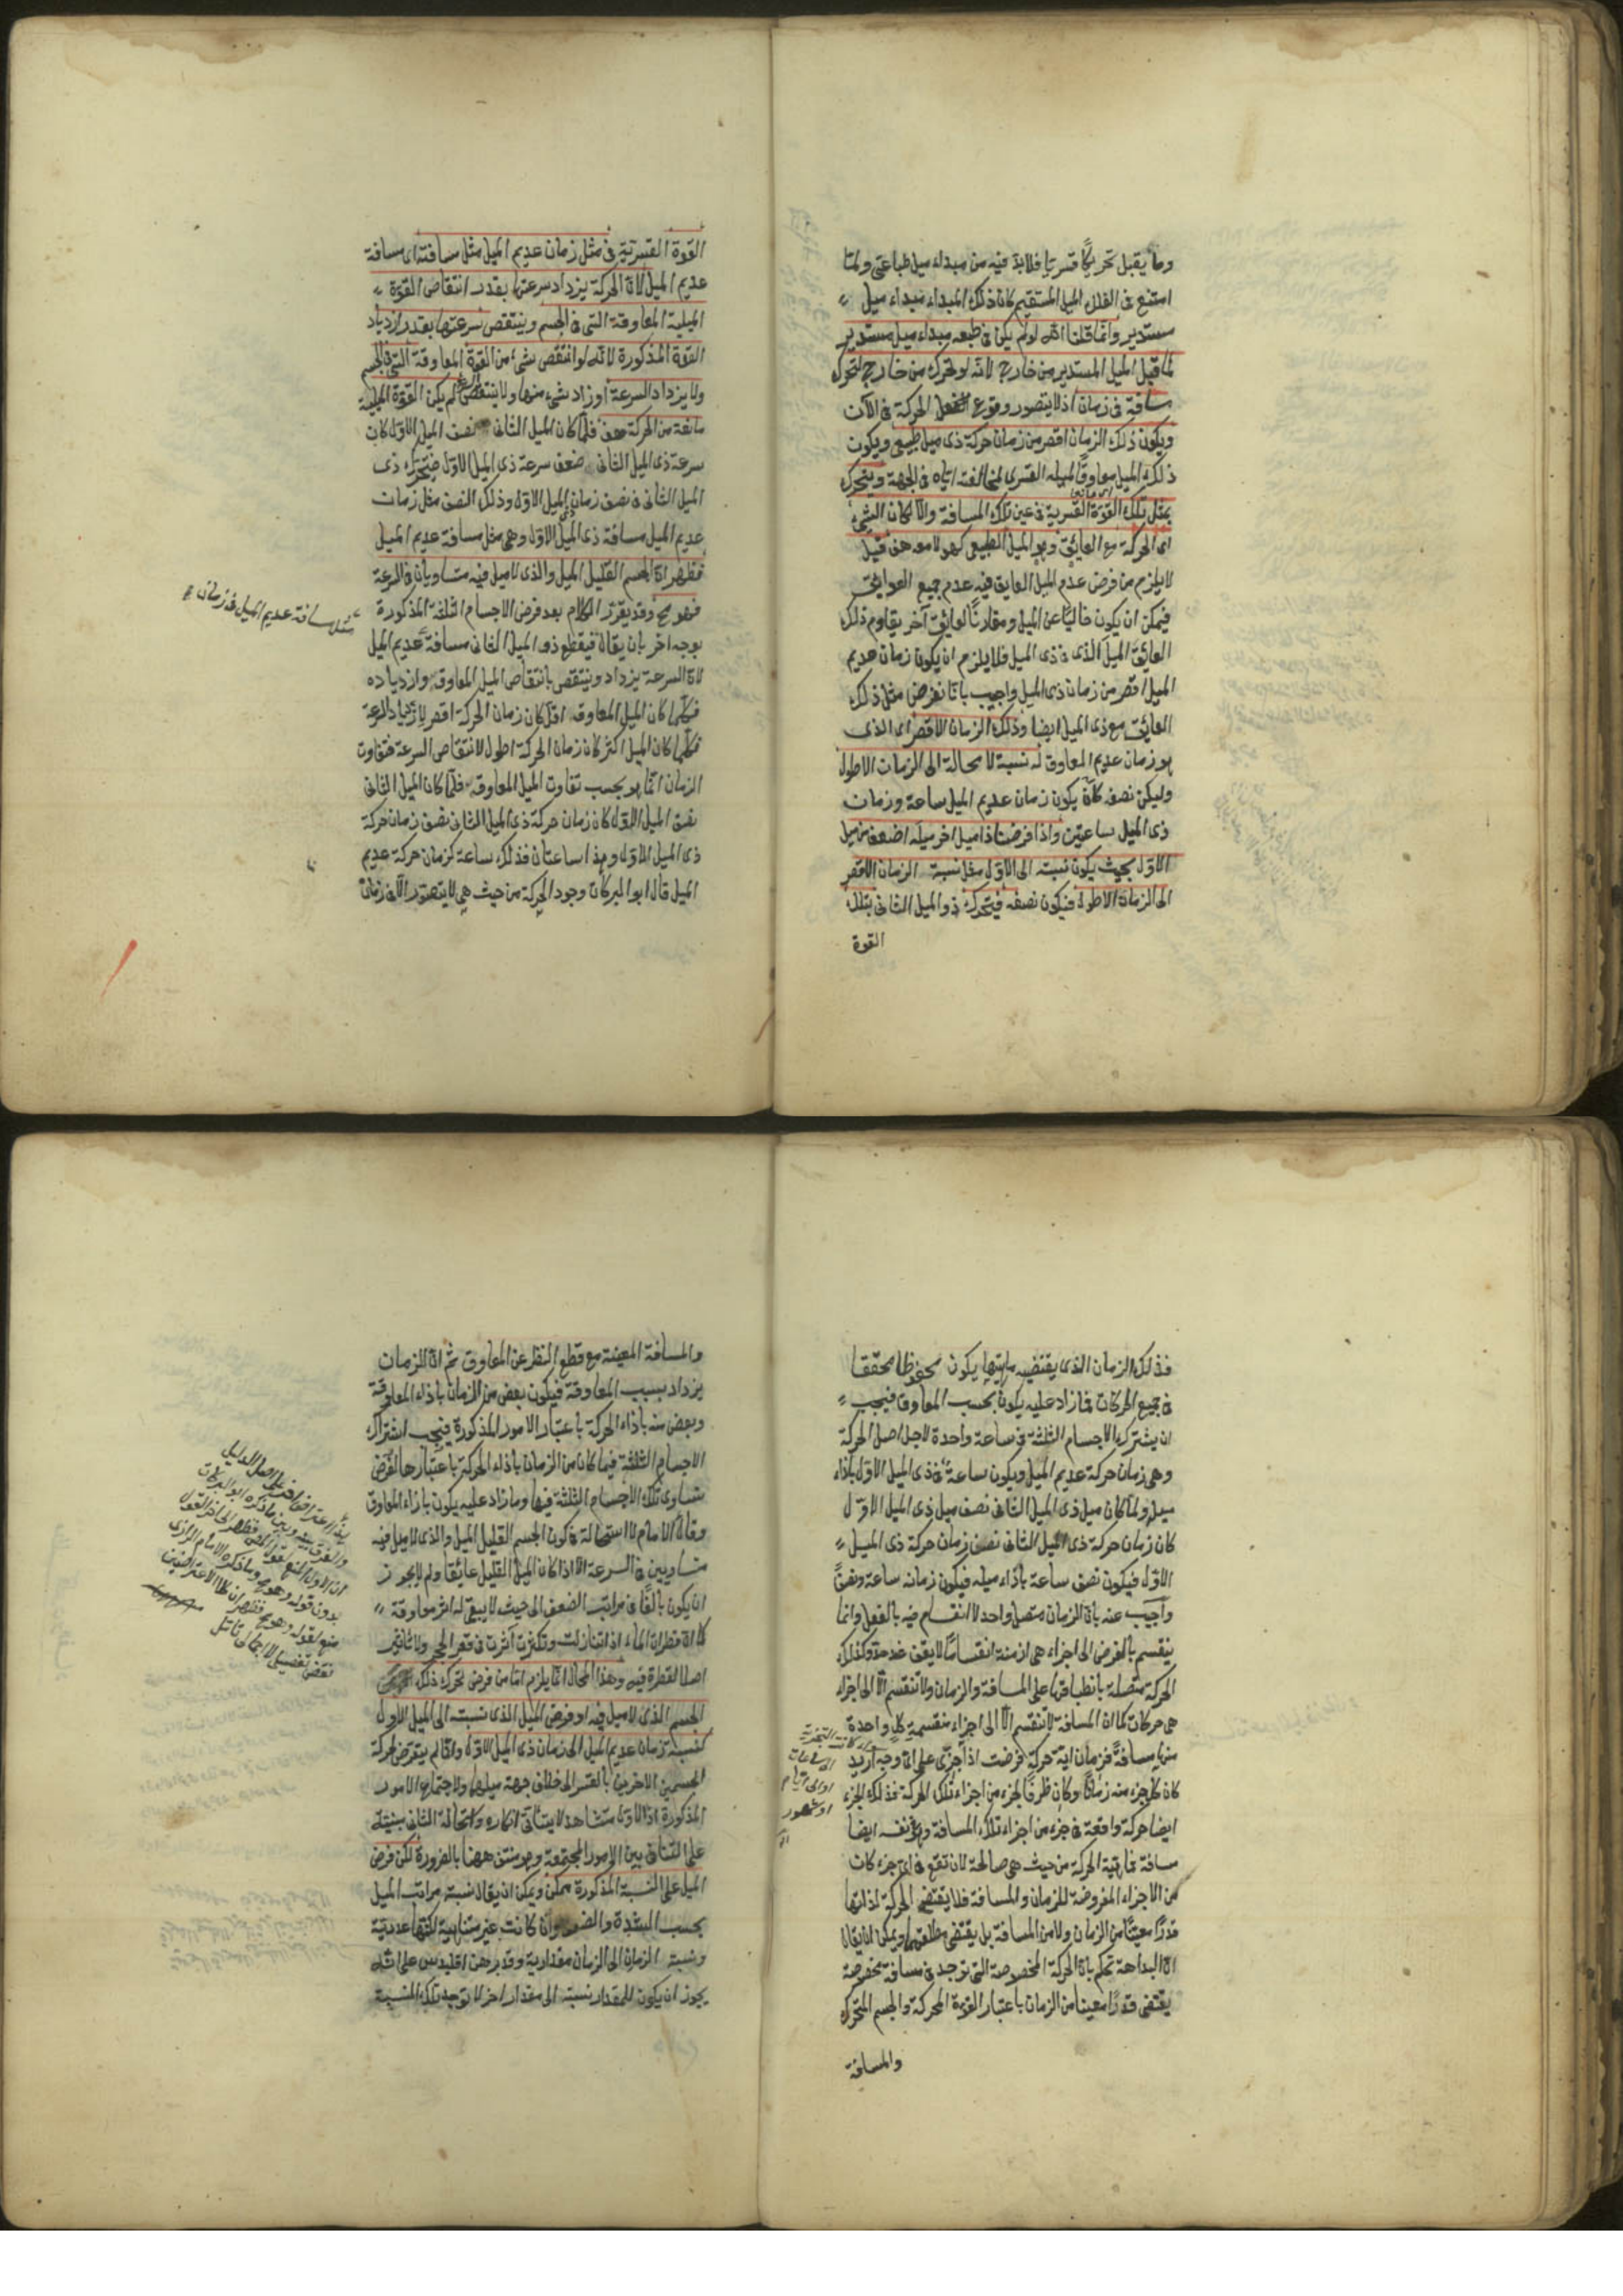 وما يقبل تحريكا قسريا فلابد فيه من مبداء ميل طباعى ولما
امتنع فى الفلك الميل المستقيم كان ذلك المبداء مبداء ميل
مستدير وانما قلنا انه لو لم يكن فى طبعه مبداء ميل مستدير
لما قبل الميل المستدير من خارج لانه لو تحرك من خارج لتحرك
مسافة فى زمان اذ لا يتصور وقوع الحركة فى الآن
ويكون ذلك الزمان اقصر من زمان حركة ذى ميل طبيعى ويكون
ذلك الميل معاوقا لميله القسرى لمخالفته اياه فى الجهة ويتحرك
بمثل تلك القوة القسرية فى عين تلك المسافة والا لكان الشئ
اى الحركة مع العايق وهو الميل الطبيعى كهو لا معه هف قيل
لا يلزم من فرض عدم الميل العايق فيه عدم جميع العوايق
فيمكن ان يكون خاليا عن الميل ومقارنا لعايق آخر يقاوم ذلك
العايق الميل الذى فى ذى الميل فلا يلزم ان يكون زمان عديم
الميل اقصر من زمان ذى الميل واجيب بانا نفرض مثل ذلك
العايق مع ذى الميل ايضا وذلك الزمان الاقصر اى الذى
هو زمان عديم المعاوق له نسبة لا محالة الى الزمان الاطول
وليكن نصفه كأن يكون زمان عديم الميل ساعة وزمان
ذى الميل ساعتين واذا فرضنا ذا ميل اخر ميله اضعف من ميل
الاول بحيث يكون نسبته الى الاول مثل نسبة الزمان الاقصر
الى الزمان الاطول فيكون نصفه فيتحرك ذو الميل الثانى بتلك
القوة
القوة القسرية فى مثل زمان عديم الميل مثل مسافته اى مسافة
عديم الميل لان الحركة يزداد سرعتها بقدر انتقاص القوة
الميلية المعاوقة التى فى الجسم وينتقص سرعتها بقدر ازدياد
القوة المذكورة لانه لو انتقص شئ من القوة المعاوقة التى فى الجسم
ولا يزداد السرعة او زاد شئ منها ولا ينتقص السرعة لم يكن القوة الميلية
مانعة من الحركة هف فلما كان الميل الثانى نصف الميل الاول كان
سرعة ذى الميل الثانى ضعف سرعة ذى الميل الاول فيتحرك ذى
الميل الثانى فى نصف زمان ذى الميل الاول وذلك النصف مثل زمان
عديم الميل مسافة ذى الميل الاول وهى مثل مسافة عديم الميل
فظهر ان الجسم القليل الميل والذى لا ميل فيه متساويان فى السرعة
فهو مح وقد يقرر الكلام بعد فرض الاجسام الثلثة المذكورة
بوجه اخر بان يقال فيقطع ذو الميل الثانى مسافة عديم الميل
مثل مسافة عديم الميل فى زمانه
لان السرعة يزداد وينتقص بانتقاص الميل المعاوق وازدياده
فكلما كان الميل المعاوق اقل كان زمان الحركة اقصر لازدياد السرعة
فكلما كان الميل اكثر كان زمان الحركة اطول لانتقاص السرعة فتفاوت
الزمان انما هو بحسب تفاوت الميل المعاوق فلما كان الميل الثانى
نصف الميل الاول كان زمان حركة ذى الميل الثانى نصف زمان حركة
ذى الميل الاول وهذا ساعتان فذلك ساعة كزمان حركة عديم
الميل قال ابو البركات وجود الحركة من حيث هى لا يتصور الا فى زمان
فذلك الزمان الذى يقتضيه ماهيتها يكون محفوظا محققا
فى جميع الحركات فما زاد عليه يكون بحسب المعاوق فيجب
ان يشترك الاجسام الثلثة فى ساعة واحدة لاجل اصل الحركة
وهى زمان حركة عديم الميل ويكون ساعة فى ذى الميل الاول بازاء
ميله ولما كان ميل ذى الميل الثانى نصف ميل ذى الميل الاول
كان زمان حركة ذى الميل الثانى نصف زمان حركة ذى الميل
الاول فيكون نصف ساعة بازاء ميله فيكون زمانه ساعة ونصفا
واجيب عنه بان الزمان متصل واحد لا انقسام فيه بالفعل وانما
ينقسم بالفرض الى اجزاء هى ازمنة انقساما لا يقف عند حد وكذلك
الحركة متصلة بانطباقها على المسافة والزمان ولا تنقسم الا الى اجزاء
هى حركات كما ان المسافة لا تنقسم الا الى اجزاء منقسمة كل واحدة
منها مسافة فزمان اية حركة فرضت اذا جزى على اى وجه اريد
كان كل جزء منه زمانا وكان ظرفا لجزء من اجزاء تلك الحركة فذلك الجزء
ايضا حركة واقعة فى جزء من اجزاء تلك المسافة وهو فى نفسه ايضا
مسافة فماهية الحركة من حيث هى صالحة لان تقع فى اى جزء كان
من الاجزاء المفروضة للزمان والمسافة فلا يقتضى الحركة لذاتها
قدرا معينا من الزمان ولا من المسافة بل يقتضى مطلقهما ويمكن ان يقال
ان البداهة تحكم بان الحركة المخصوصة التى توجد فى مسافة مخصوصة
يقتضى قدرا معينا من الزمان باعتبار القوة المحركة والجسم المتحرك
والمسافة
الساعات
او الى ايام
او شهور
والمسافة المعينة مع قطع النظر عن المعاوق ثم ان الزمان
يزداد بسبب المعاوقة فيكون بعض من الزمان بازاء المعاوقة
وبعض منه بازاء الحركة باعتبار الامور المذكورة فيجب اشتراك
الاجسام الثلثة فيما كان من الزمان بازاء الحركة باعتبارها لفرض
تساوى تلك الاجسام الثلثة فيها وما زاد عليه يكون بازاء المعاوق
وقال الامام لا استحالة فى كون الجسم القليل الميل والذى لا ميل فيه
متساويين فى السرعة الا اذا كان الميل القليل عائقا ولم لا يجوز
ان يكون بالغا فى مراتب الضعف الى حيث لا يبقى له اثر معاوقة
كما ان قطرات الماء اذا تنازلت وتكثرت اثرت فى قعر الحجر ولا تأثير
اصلا لقطرة فيه وهذا المحال انما يلزم اما من فرض تحرك ذلك
الجسم الذى لا ميل فيه او فرض الميل الذى نسبته الى الميل الاول
كنسبة زمان عديم الميل الى زمان ذى الميل الاول وانما لم يتعرض لحركة
الجسمين الاخرين بالقسر الى خلاف جهة ميلهما ولاجتماع الامور
المذكورة اذ الاول مشاهد لا يتأتى انكاره واستحالة الثانى مبنية
على التنافى بين الامور المجتمعة وهو منتف ههنا بالضرورة لكن فرض
الميل على النسبة المذكورة ممكن ويمكن ان يقال نسبة مراتب الميل
بحسب الشدة والضعف وان كانت غير متناهية لكنها عددية
ونسبة الزمان الى الزمان مقدارية وقد برهن اقليدس على انه
يجوز ان يكون للمقدار نسبة الى مقدار اخر لا توجد تلك النسبة
والفرق بينه وبين ما ذكره ابو البركات
بدون قوله وهو مح وما ذكره الامام الرازى
منع لقوله وهو مح فظهر ان كلا الاعتراضين
نقض تفصيلى لا اجمالى تأمل